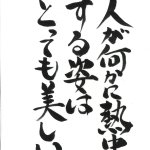 人が何かに熱中
する姿は
とっても美しい